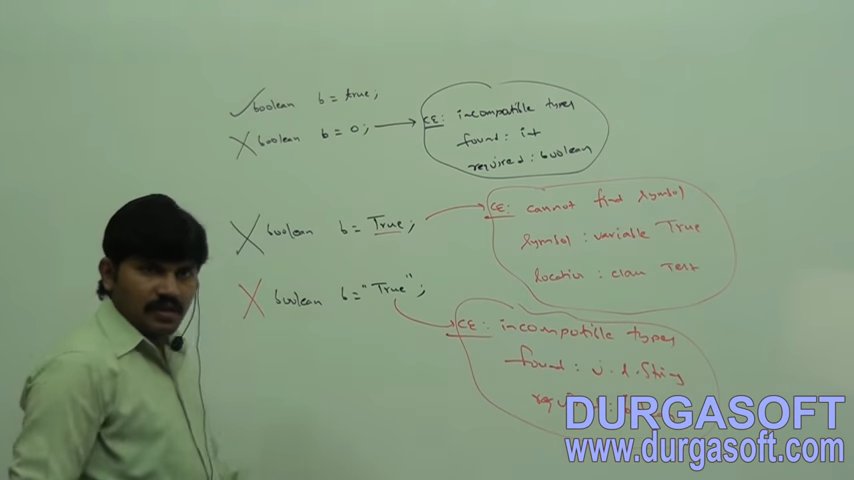 boolean b = true;
boolean b = 0; → CE: incompatible types
found: int
required: boolean
boolean b = True; → CE: cannot find symbol
symbol: variable True
location: class Test
boolean b = "True"; → CE: incompatible types
found: j.l.String
required:
DURGASOFT
www.durgasoft.com